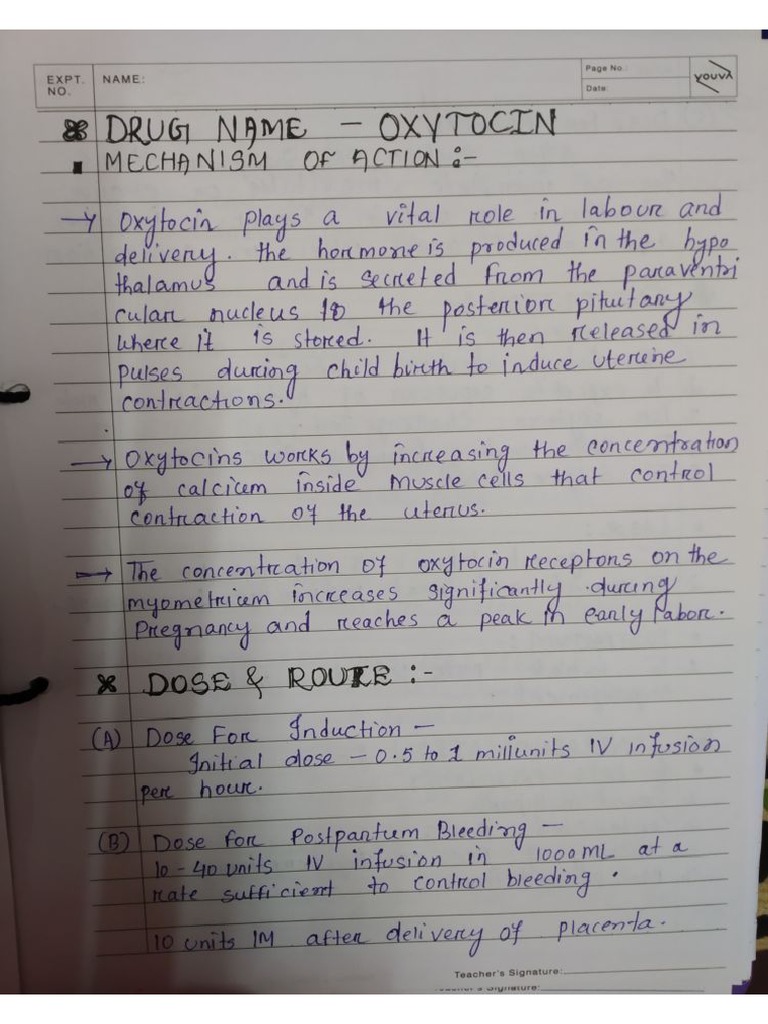 EXPT. NO. NAME: Page No.:
Date:
YOUVA
DRUG NAME - OXYTOCIN
MECHANISM OF ACTION :-
→ Oxytocin plays a vital role in labour and
delivery. the hormone is produced in the hypo
thalamus and is secreted from the paraventri
cular nucleus to the posterior pituitary
where it is stored. It is then released in
pulses during child birth to induce uterine
contractions.
→ Oxytocins works by increasing the concentration
of calcium inside muscle cells that control
contraction of the uterus.
→ The concentration of oxytocin receptors on the
myometrium increases significantly during
Pregnancy and reaches a peak in early labor.
DOSE & ROUTE :-
(A) Dose For Induction -
Initial dose - 0.5 to 1 milliunits IV infusion
per hour.
(B) Dose for Postpartum Bleeding -
10-40 units IV infusion in 1000ML at a
rate sufficient to control bleeding.
10 units IM after delivery of placenta.
Teacher's Signature:
Teacher's Signature: